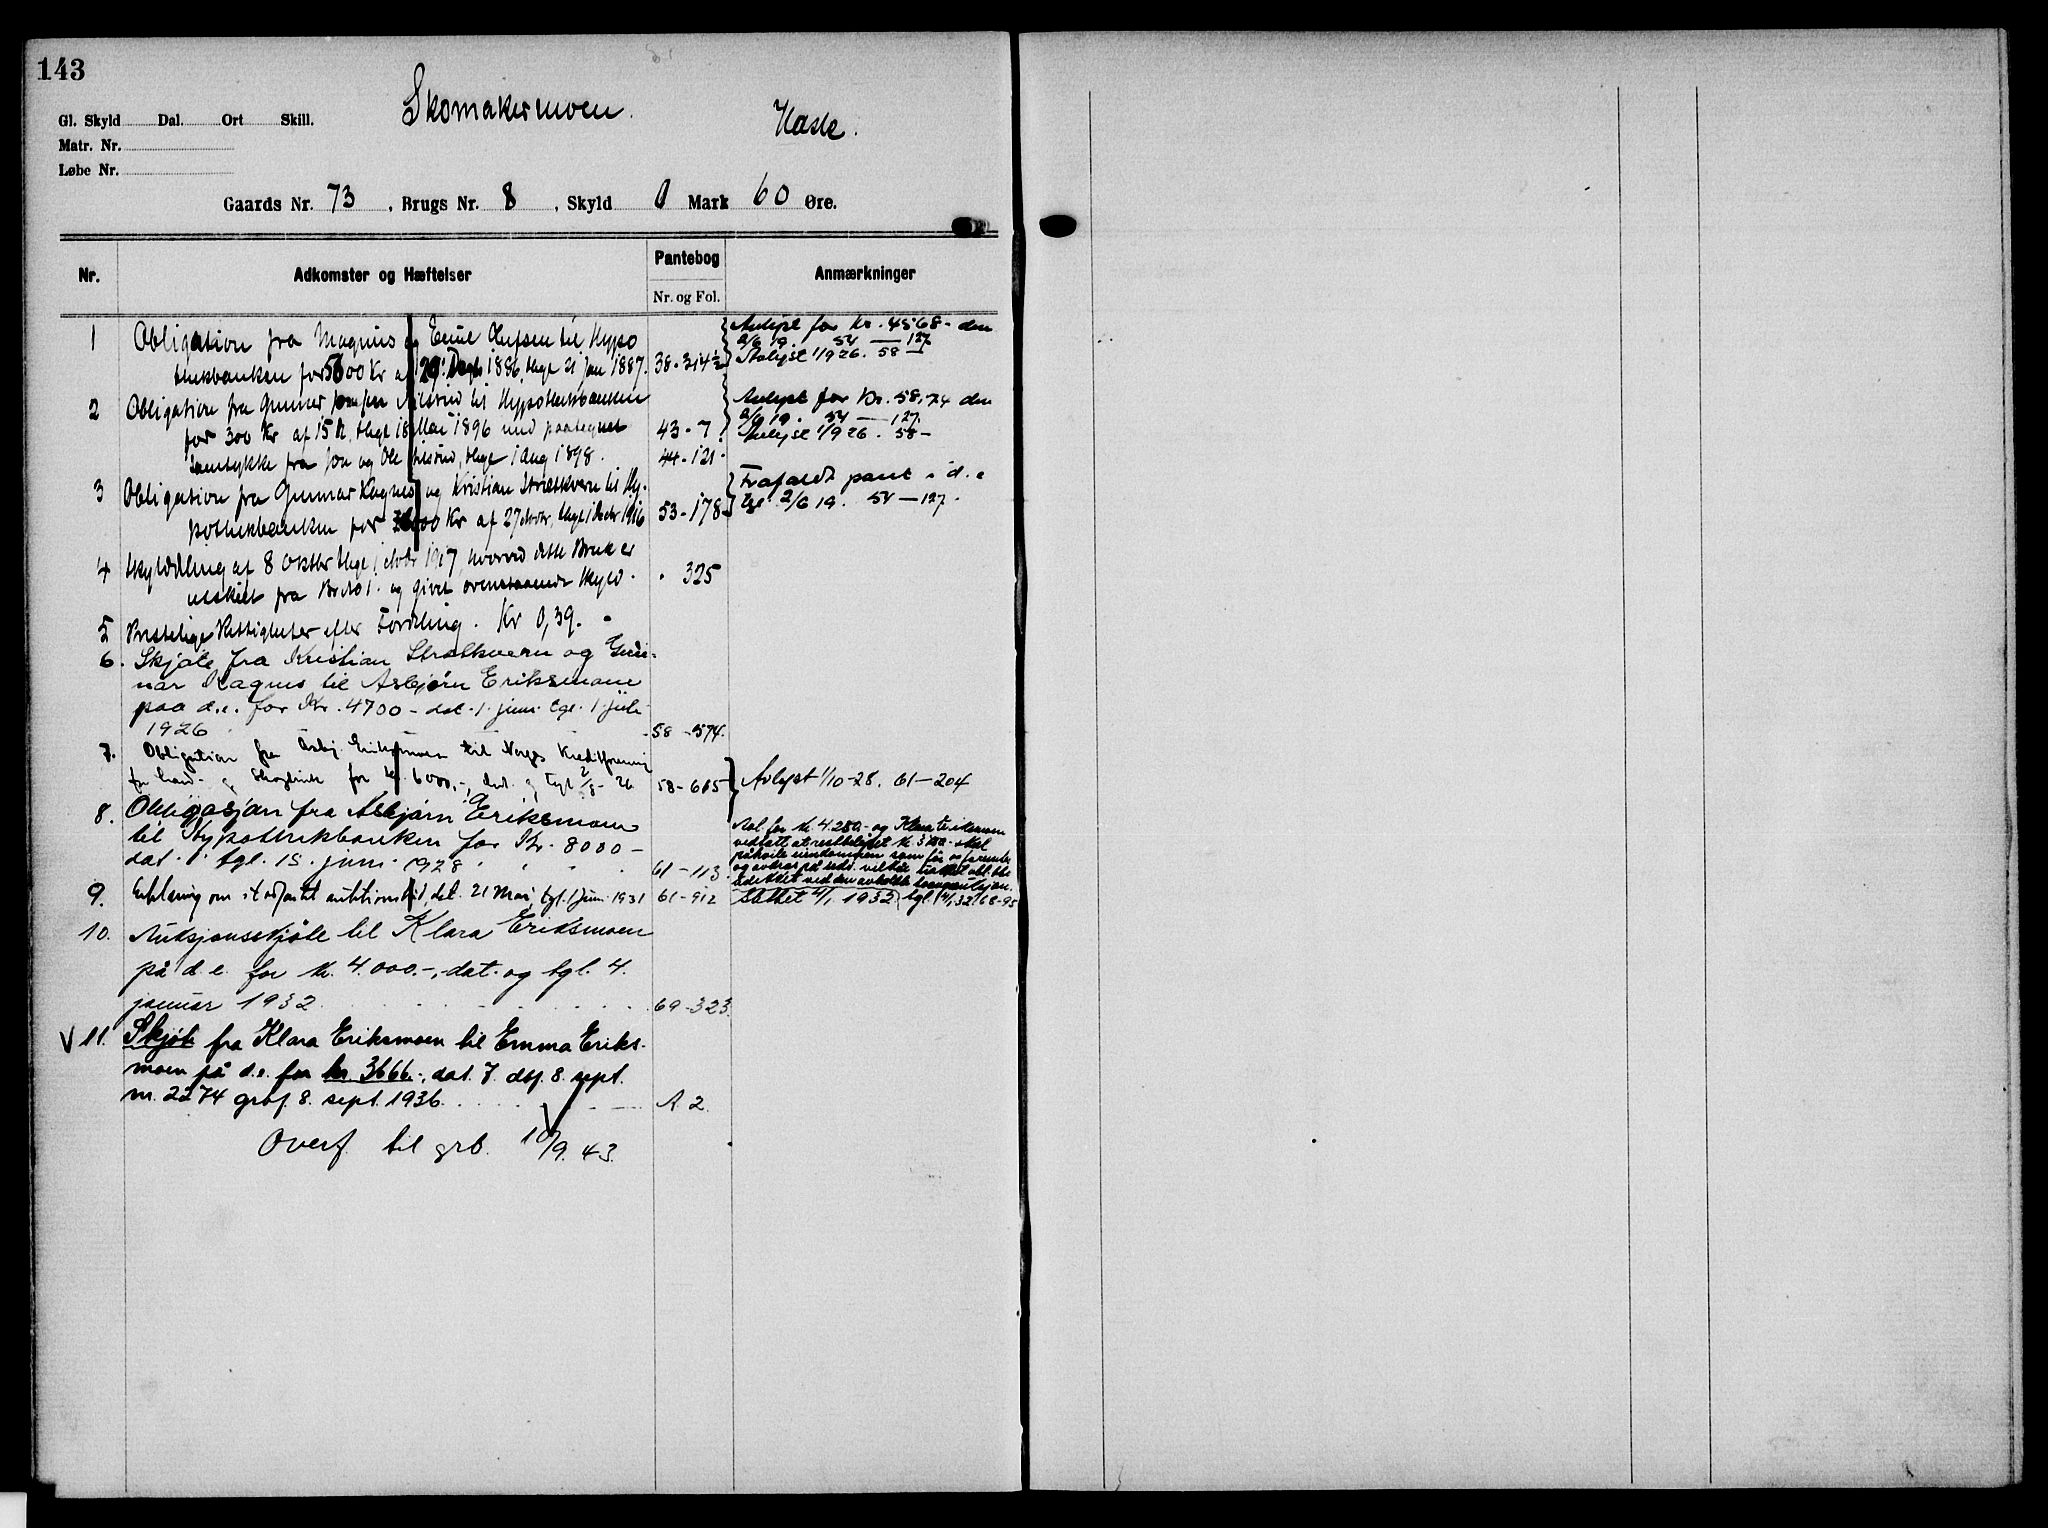 143
Skomakermoen. Hasle.
Gl. Skyld Dal. Ort Skill.
Matr. Nr.
Løbe Nr.
Gaards Nr. 73, Brugs Nr. 8, Skyld 0 Mark 60 Øre.
Nr. Adkomster og Hæftelser Pantebog Nr. og Fol. Anmærkninger
1 Obligation fra Magnus og Emil Olufsen til Hypo
thekbanken for 5600 Kr af 29 1886, thgl 21 Jan 1887. 38-314½
Avlyst for Kr. 4568- den
2/6 19. 54 — 127
Avlyst 1/9 26. 58 —
2 Obligation fra Gunnar til Hypothekbanken
for 300 Kr af 15 ds, thgl 18 Mai 1896 med paategnet
Samtykke fra Jon og Ole thgl 1 Aug 1898.
43-7
44-121
Avlyst for Kr. 58,74 den
2/6 19. 54 — 127.
Avlyst 1/9 26. 58 -
3 Obligation fra Gunnar Kagnes og Kristian Strætkvern til Hy-
pothekbanken for Kr af 27 Novbr, thgl 1 Decbr 1916 53-178
Frafaldt pant i d. e
tgl 2/6 19. 54 — 127.
4 Skylddeling af 8 Oktbr thgl 1 Novbr 1917, hvorved dette Bruk er
utskilt fra Br No 1. og givet ovenstaaende Skyld. " 325
5 Prestelige Rettigheter efter Fordeling. Kr 0,39.
6. Skjøte fra Kristian Stratkvern og Gun-
nar Kagnes til Asbjørn Eriksmoen
paa d.e. for Kr. 4700 - dat. 1. juni tgl. 1 juli
1926 58-574.
7. Obligation fra Asbj. Eriksmoen til Norges Kreditforening
for land- og Skogbruk for kr. 6000,-, dat. og tgl 2/8-26 58-665
Avlyst 1/10-28. 61-204
8. Obligasjon fra Asbjørn Eriksmoen
til Hypothekbanken for Kr. 8000-
dat. 1. tgl. 15. juni 1928 61-113
Avl for kr. 4.280,- og Klara Eriksmoen
vedtatt at restbeløpet kr. skal
påhvile eiendommen som før og forrentes
og avdras på sedv. vilkår
ved den avholdte tvangsauksjon.
9. Erklæring om auktionsbud, dat. 21 Mai, tgl. 1 Juni 1931 61-912
Slettet 4/1 1932, tgl. 14/1 32. 68-95
10. Auksjonsskjøte til Klara Eriksmoen
på d.e. for kr. 4.000.-, dat. og tgl. 4.
januar 1932 69-323.
V 11. Skjøte fra Klara Eriksmoen til Emma Eriks-
moen på d.e. for kr. 3666.-, dat. 7. dbf. 8. sept.
nr. 2274 grbf. 8. sept. 1936. A 2.
Overf. til grb. 10/9. 43.